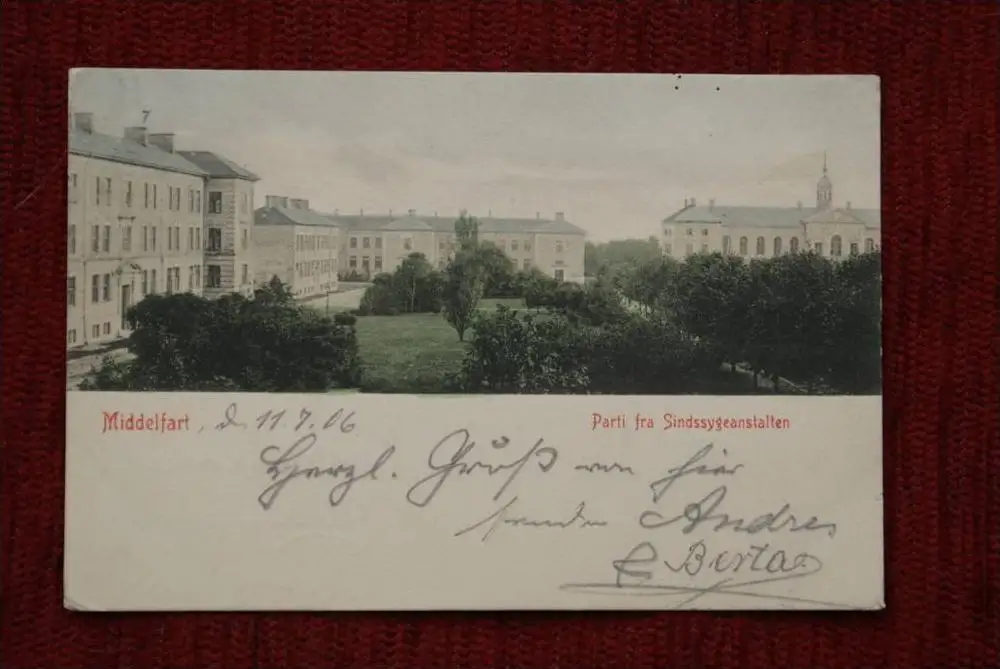 Middelfart, d. 11.7.06
Parti fra Sindssygeanstalten
Herzl. Gruß von hier
senden Andres
& Berta